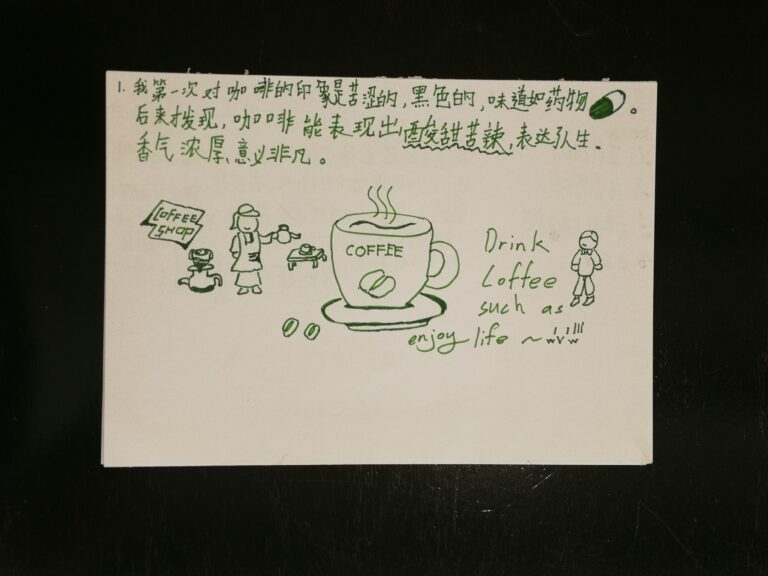 1. 我第一次对咖啡的印象是苦涩的,黑色的,味道如药物。
后来才发现,咖啡能表现出酸甜苦辣,表达人生.
香气浓厚,意义非凡。
COFFEE
SHOP
COFFEE
Drink
Coffee
such as
enjoy life ~